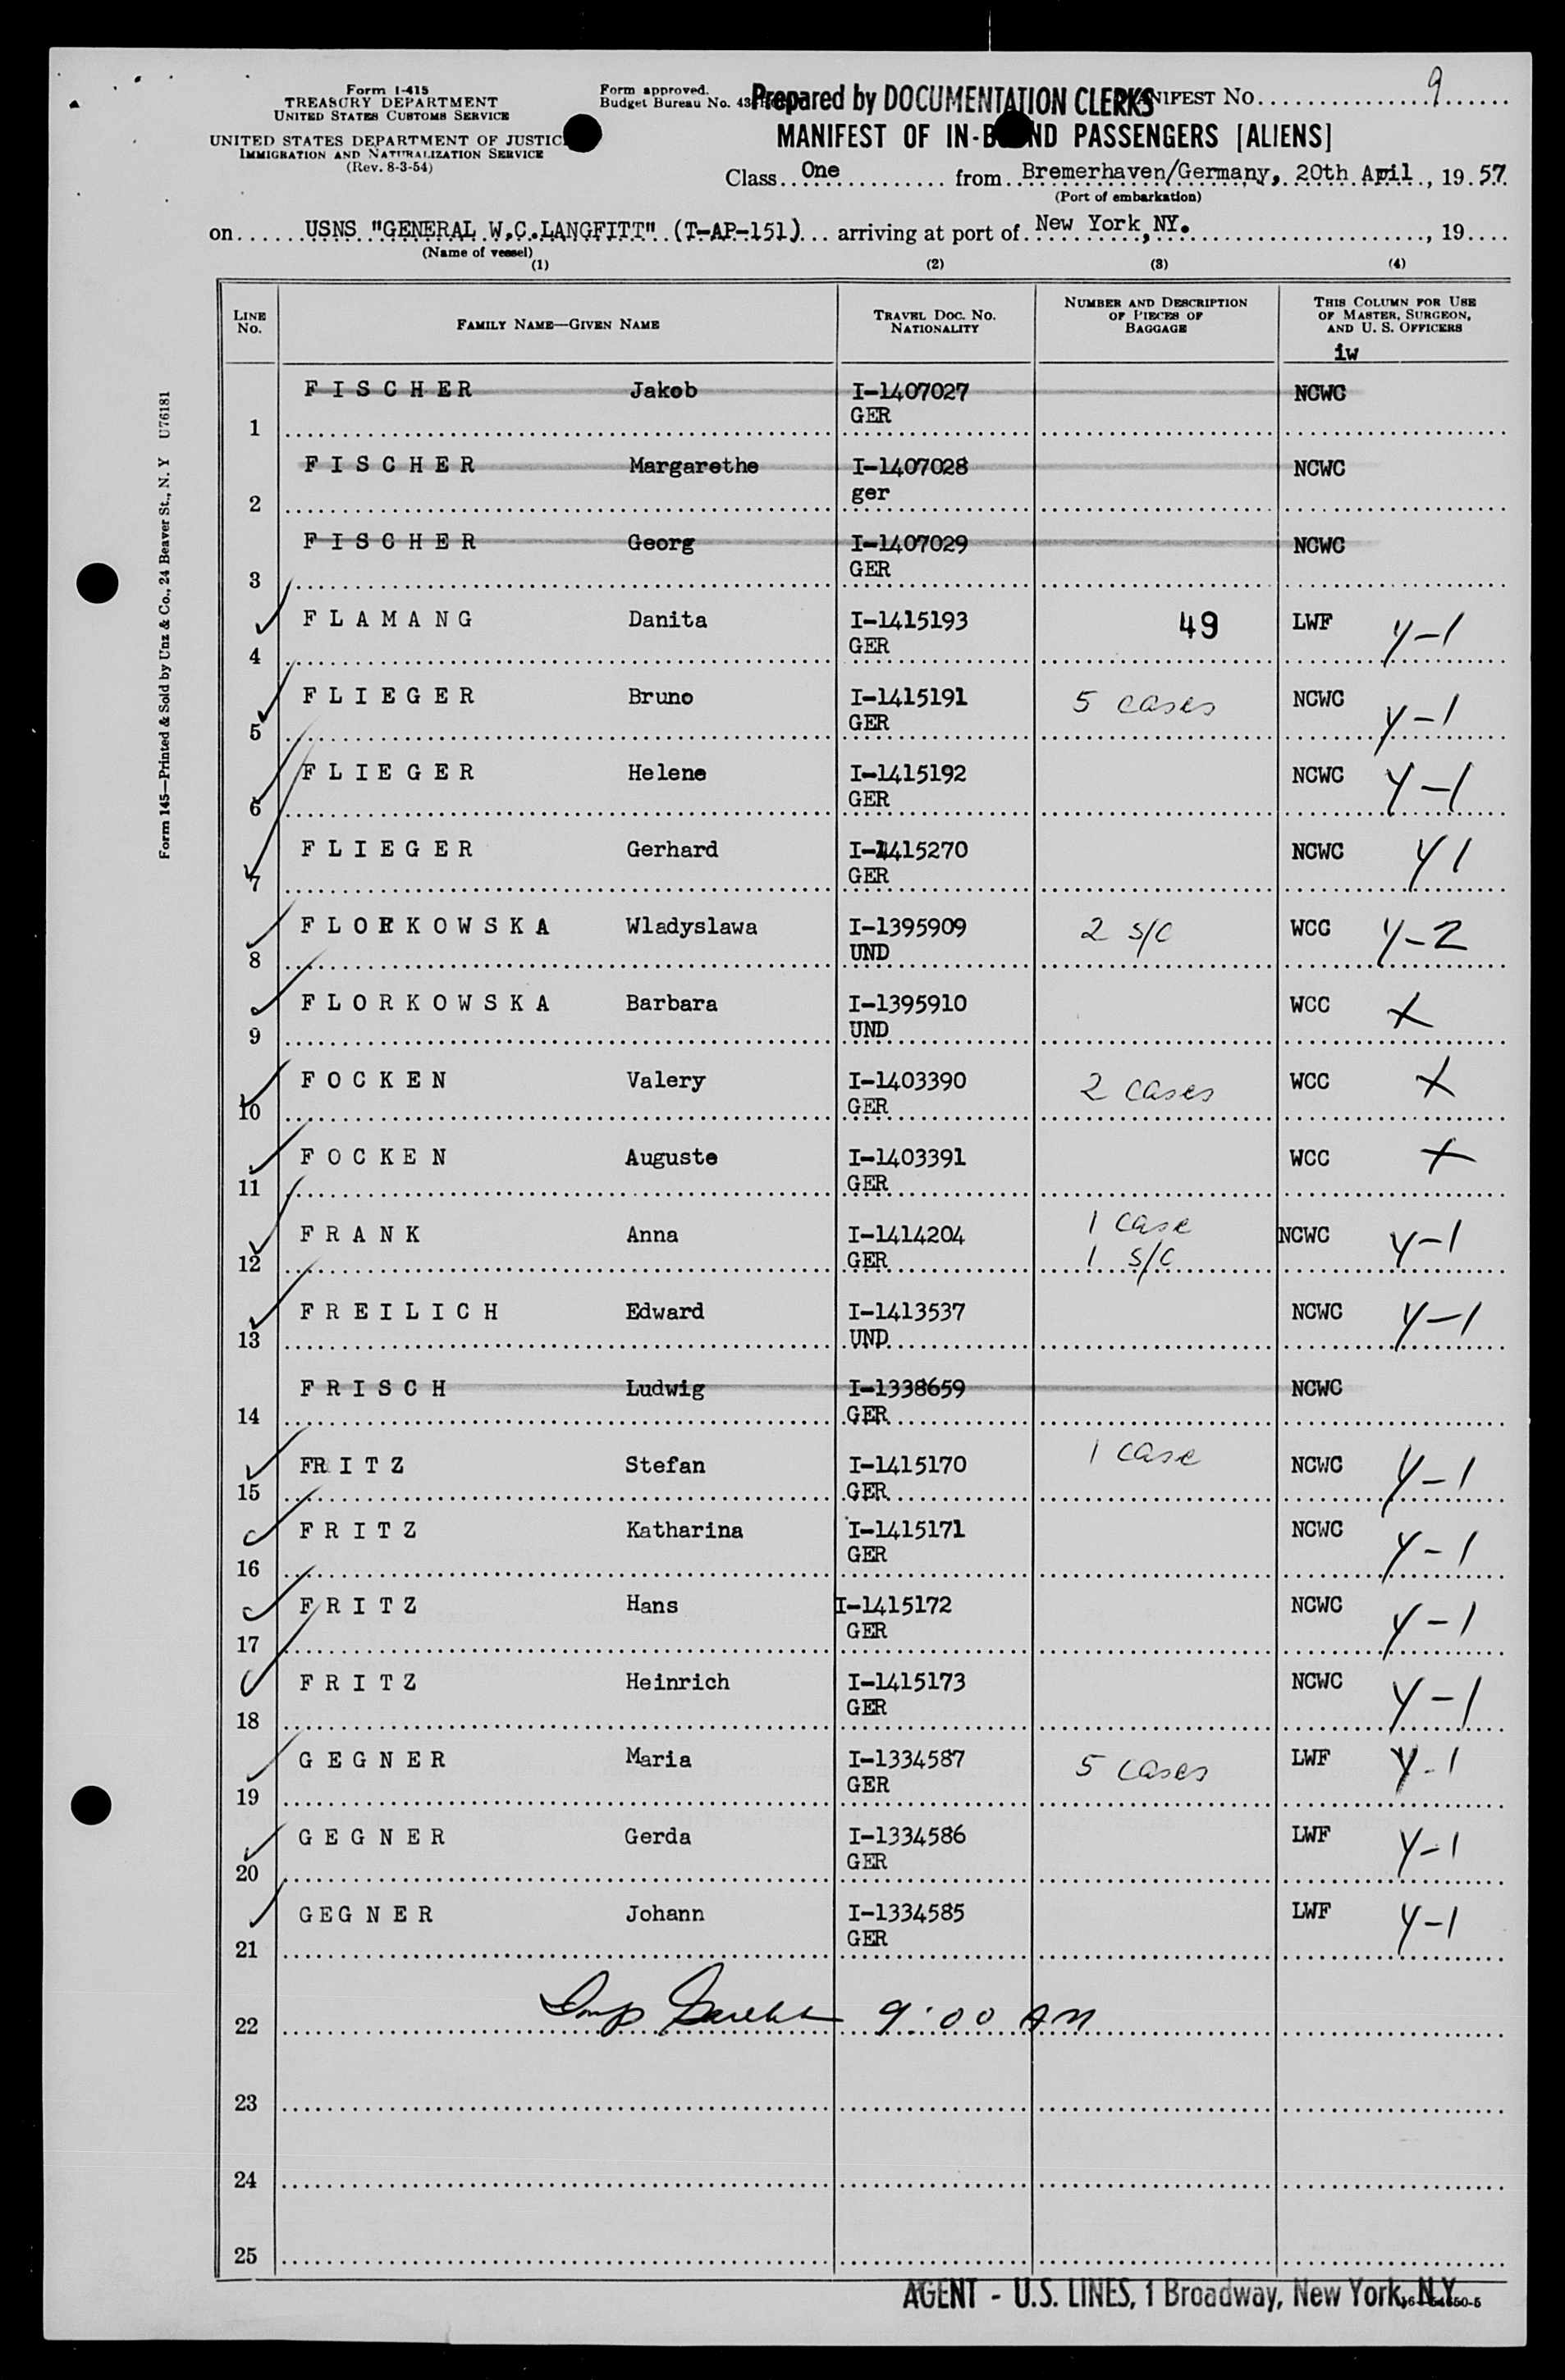 Form I-415
TREASURY DEPARTMENT
UNITED STATES CUSTOMS SERVICE
UNITED STATES DEPARTMENT OF JUSTIC
IMMIGRATION AND NATURALIZATION SERVICE
(Rev. 8-3-54)
Form approved.
Budget Bureau No. 43
Prepared by DOCUMENTATION CLERKS
ANIFEST NO. 9
MANIFEST OF IN-B ND PASSENGERS [ALIENS]
Class One from Bremerhaven/Germany, 20th April, 19 57
(Port of embarkation)
on USNS "GENERAL W.C.LANGFITT" (T-AP-151) arriving at port of New York, NY. , 19
(Name of vessel)
(1) (2) (3) (4)
LINE No. FAMILY NAME—GIVEN NAME TRAVEL DOC. NO. NATIONALITY NUMBER AND DESCRIPTION OF PIECES OF BAGGAGE THIS COLUMN FOR USE OF MASTER, SURGEON, AND U. S. OFFICERS
iw
1 FISCHER Jakob I-1407027 GER NCWC
2 FISCHER Margarethe I-1407028 ger NCWC
3 FISCHER Georg I-1407029 GER NCWC
4 FLAMANG Danita I-1415193 GER 49 LWF Y-1
5 FLIEGER Bruno I-1415191 GER 5 cases NCWC Y-1
6 FLIEGER Helene I-1415192 GER NCWC Y-1
7 FLIEGER Gerhard I-1415270 GER NCWC Y1
8 FLORKOWSKA Wladyslawa I-1395909 UND 2 s/c WCC Y-2
9 FLORKOWSKA Barbara I-1395910 UND WCC X
10 FOCKEN Valery I-1403390 GER 2 cases WCC X
11 FOCKEN Auguste I-1403391 GER WCC X
12 FRANK Anna I-1414204 GER 1 case 1 s/c NCWC Y-1
13 FREILICH Edward I-1413537 UND NCWC Y-1
14 FRISCH Ludwig I-1338659 GER NCWC
15 FRITZ Stefan I-1415170 GER 1 case NCWC Y-1
16 FRITZ Katharina I-1415171 GER NCWC Y-1
17 FRITZ Hans I-1415172 GER NCWC Y-1
18 FRITZ Heinrich I-1415173 GER NCWC Y-1
19 GEGNER Maria I-1334587 GER 5 cases LWF Y-1
20 GEGNER Gerda I-1334586 GER LWF Y-1
21 GEGNER Johann I-1334585 GER LWF Y-1
22 9:00 AM
23
24
25
AGENT - U.S. LINES, 1 Broadway, New York, N.Y.
Form 145—Printed & Sold by Unz & Co., 24 Beaver St., N. Y U76181